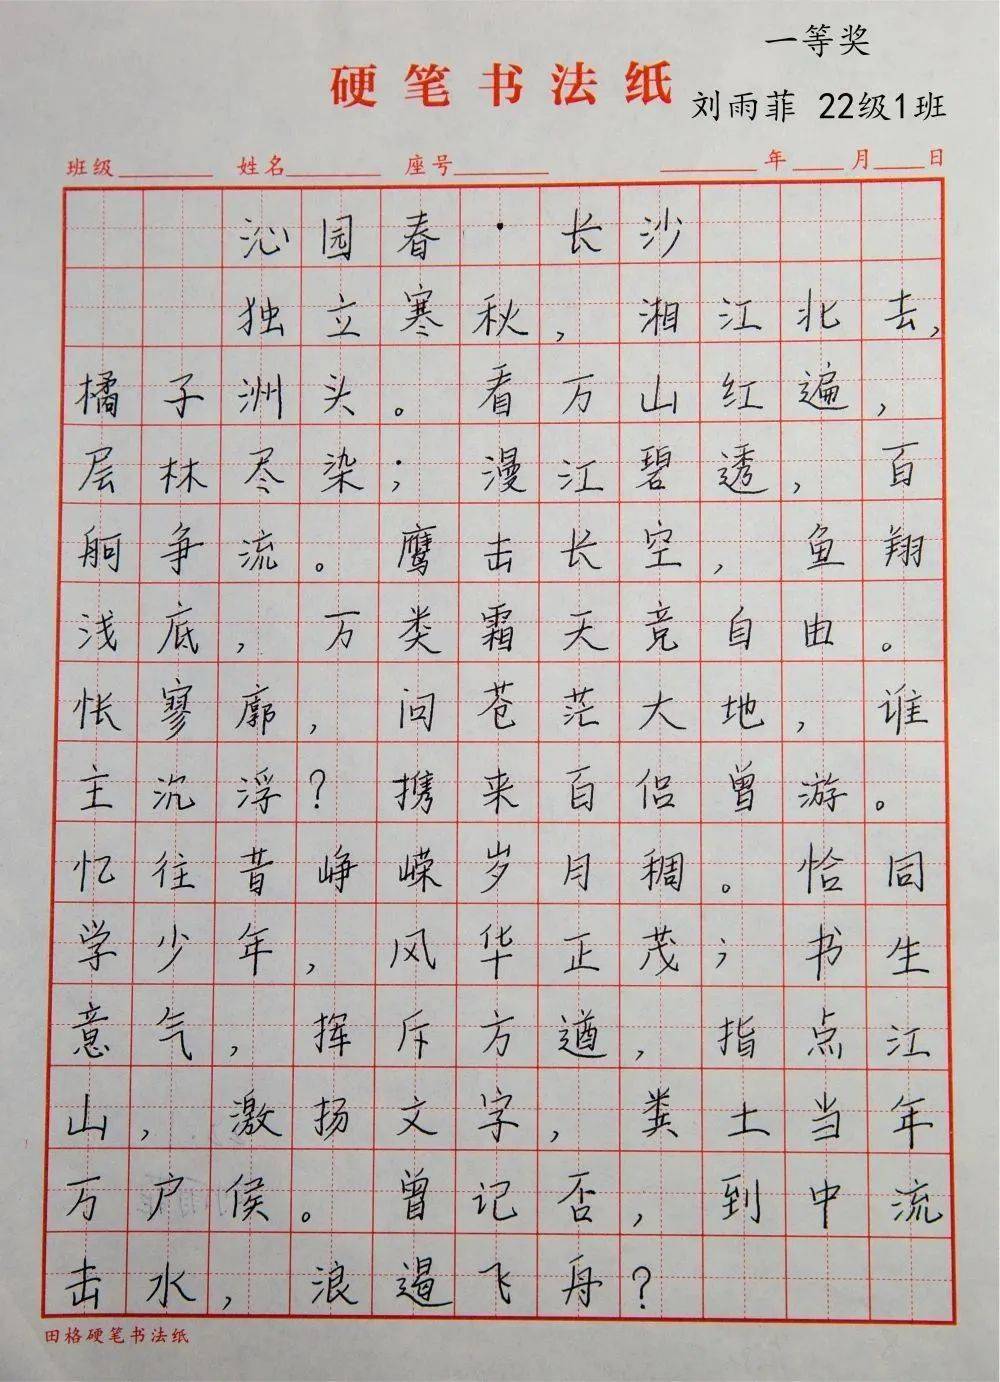 一等奖
硬笔书法纸
刘雨菲 22级1班
班级 姓名 座号 年 月 日
沁园春·长沙
独立寒秋，湘江北去，
橘子洲头。看万山红遍，
层林尽染；漫江碧透，百
舸争流。鹰击长空，鱼翔
浅底，万类霜天竞自由。
怅寥廓，问苍茫大地，谁
主沉浮？携来百侣曾游。
忆往昔峥嵘岁月稠。恰同
学少年，风华正茂；书生
意气，挥斥方遒，指点江
山，激扬文字，粪土当年
万户侯。曾记否，到中流
击水，浪遏飞舟？
田格硬笔书法纸